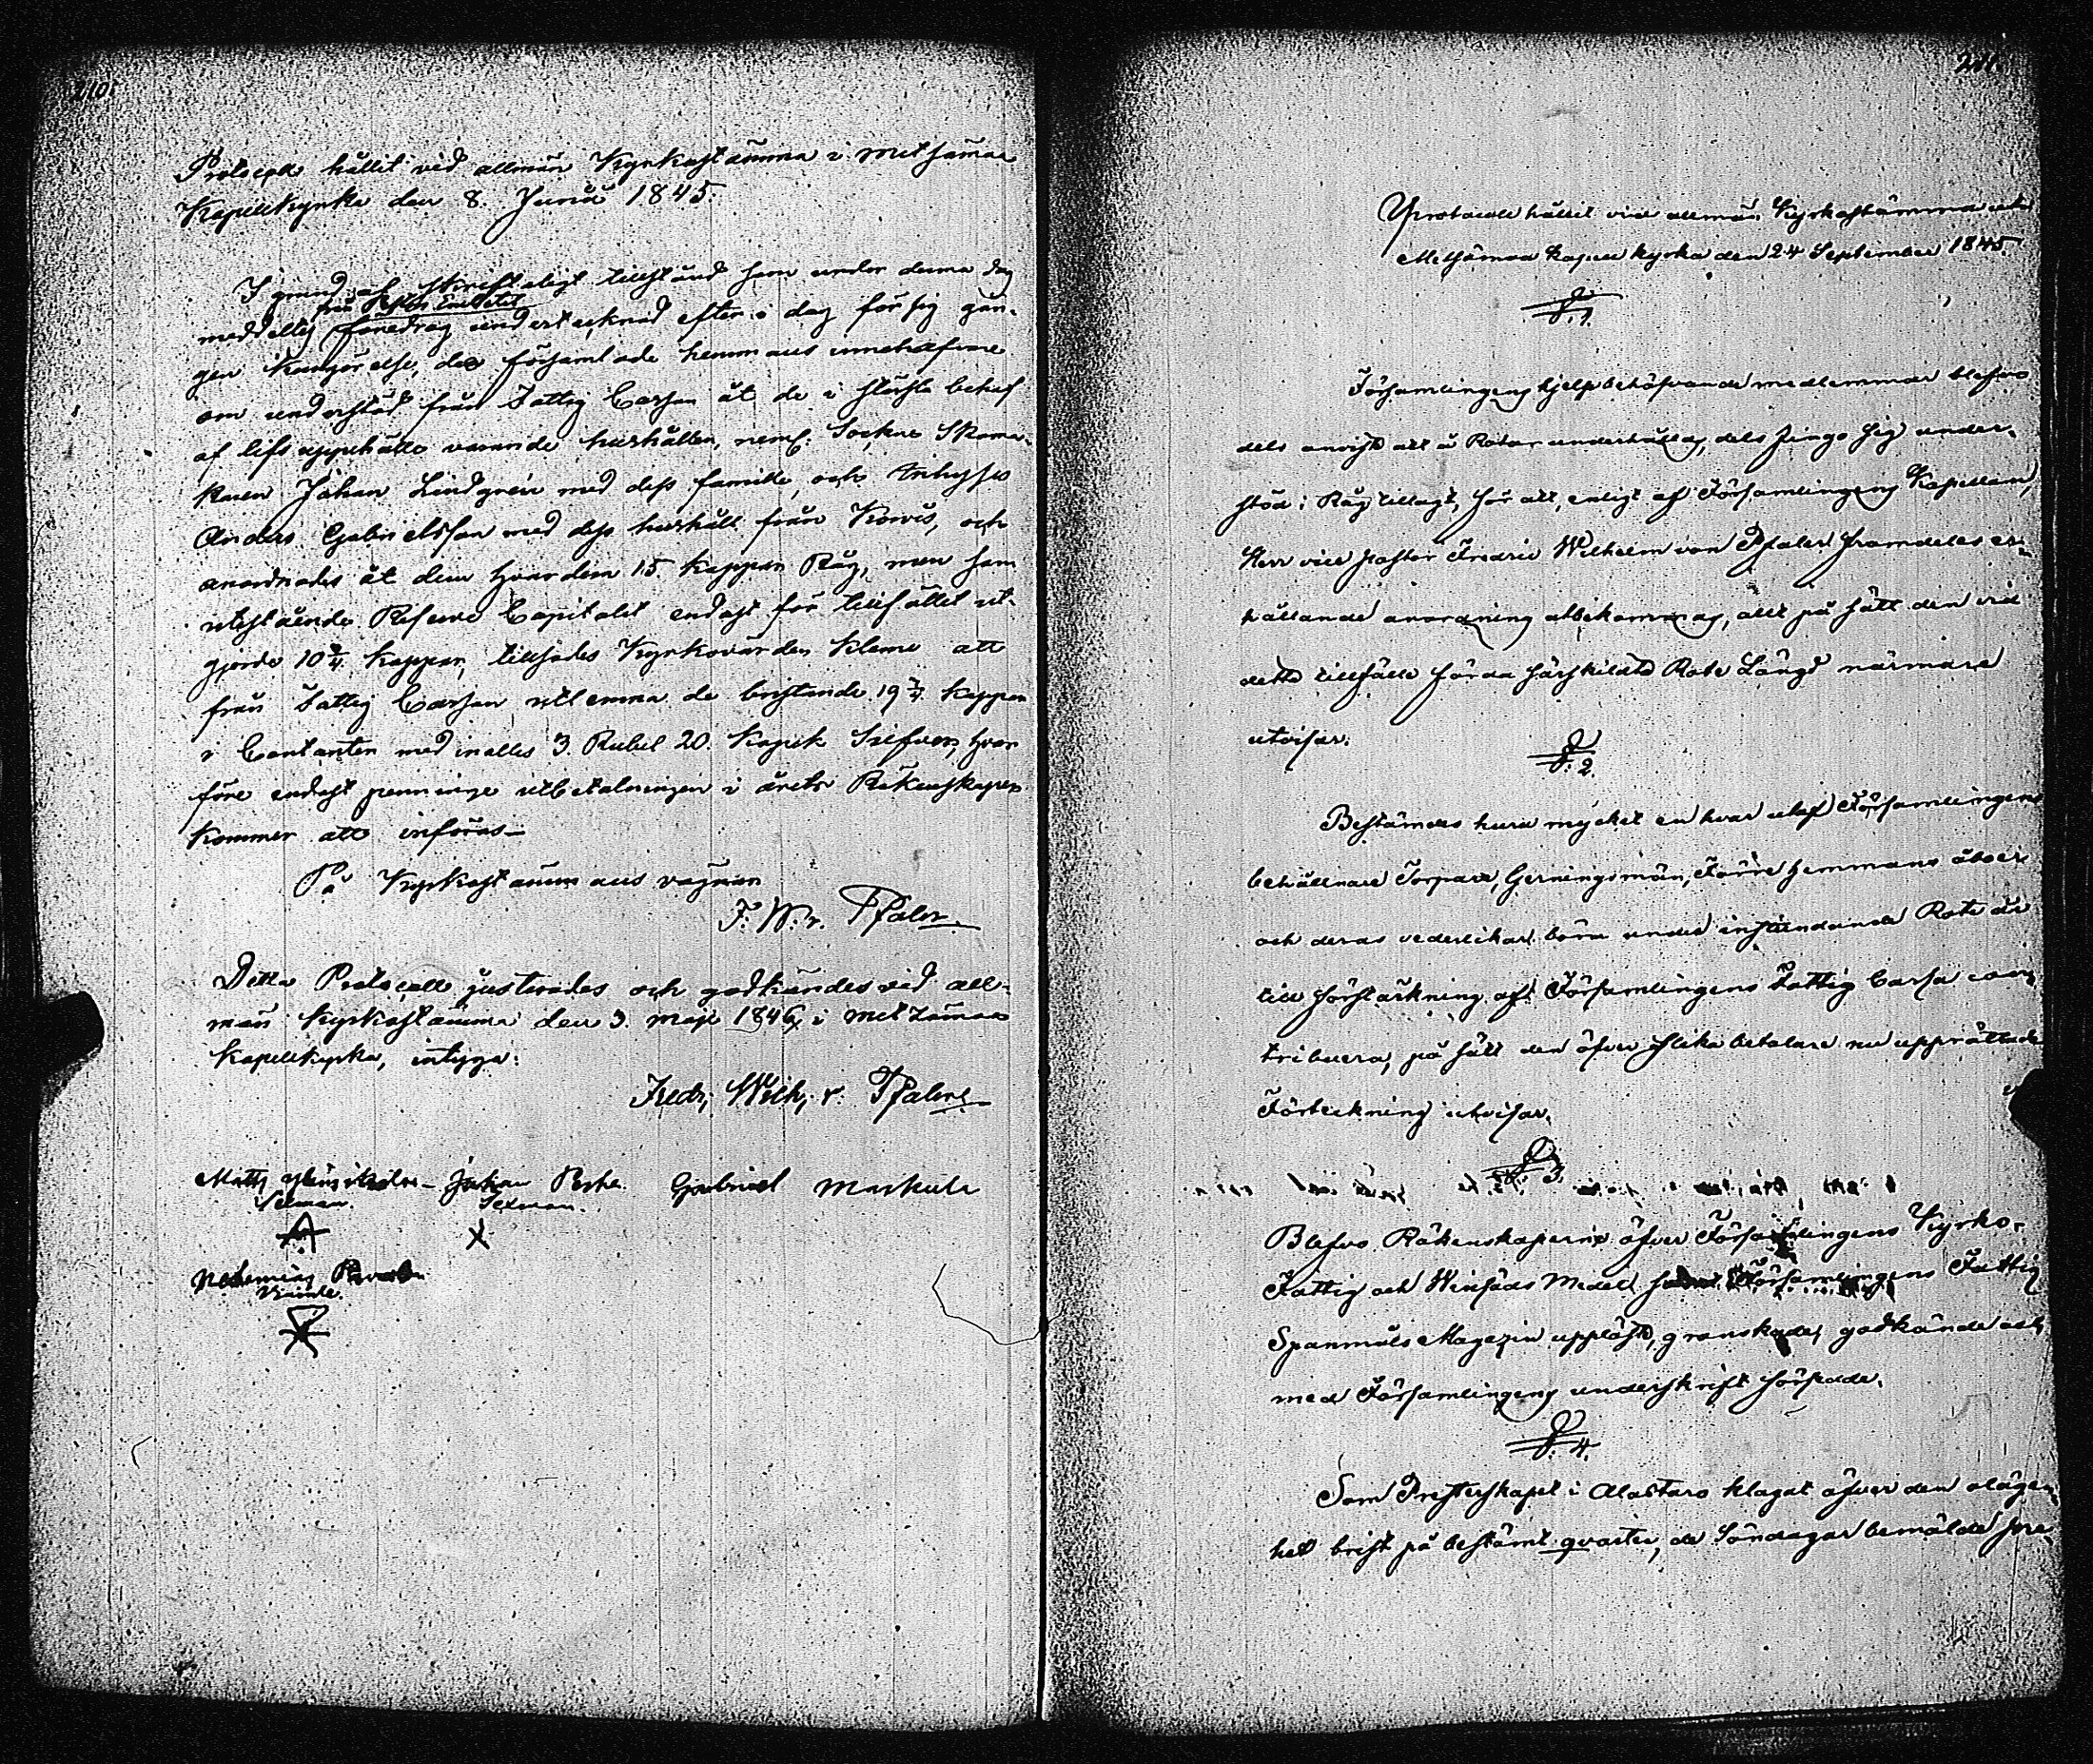 210.
Protocoll hållit vid allmän Kyrkostämma i Metsämaa
Kapellkyrka den 8. Junii 1845.
I grund af skrifteligt tillstånd som under denna dag
från Pastors Embetet
meddelts föredrog undertecknad efter i dag försig gån-
gen kungörelse, des församlade hemmans innehafvare
om understöd från Fattig Cassan åt de i största behof
af lifs uppehälle varande hushållen, neml: Sockne Skoma-
karen Johan Lindgren med dess famille, och Inhyses
Anders Gabrielsson med dess hushåll från Korvis, och
anordnades åt dem hvardera 15. kappar Råg, men som
utestående Reserve Capitalet endast för tillfället ut-
gjorde 10 3/4. kappar, tillsades Kyrkovärden Kleme att
från Fattig Cassan utlemna de bristande 19 1/4 kappar
i Contanter med inalles 3. Rubel 20. Kopek Silfver, hvar
före endast penninge utbetalningen i årets Räkenskaper
kommer att införas—
På Kyrkostämmans vägnar
F. W. v. Pfaler.
Detta Protocoll justerades och godkändes vid all-
män Kyrkostämma den 3. Maji 1846 i Metzämaa
Kapellkyrka, intyga:
Fredr; Wilh; v. Pfaler.
Matts Johan Gabriel Markula
Sexman. Sexman.
211.
Protocoll hållit vid allmän Kyrkostämma uti
Metsämaa Kapell kyrka den 24 September 1845.
§. 1.
Församlingens hjelpbehöfvande medlemmar blefvo
dels anviste att å Rotar underhållas, dels fingo sig under-
stöd i Råg tillagt, för att, enligt af Församlingens Kapellan,
Herr vice pastor Fredric Wilhelm von Pfaler framdeles er-
hållande anordning utbekommas, allt på sätt den vid
detta tillfälle förda särskildta Rote Längd närmare
utvisar.
§. 2.
Bestämdes huru mycket en hvar utaf Församlingens
behållnare Torpare, Gerningsmän, Förre hemmans åboer
och deras vederlikar böra under instundande Rote år
till förstärkning af Församlingens Fattig Cassa con-
tribuera, på sätt den öfver slika betalare nu upprättade
Förteckning utvisar.
§. 3.
Blefvo Räkenskaperne öfver Församlingens Kyrko-
Fattig och Winsäds Medel Församlingens Fattig
Spanmåls Magazin uppläste, granskade, godkände och
med Församlingens underskrift försedde.
§. 4.
Som Presterskapet i Alastaro klagat öfver den olägen-
het brist på bestämt qvarter, de Söndagar bemälde pre-